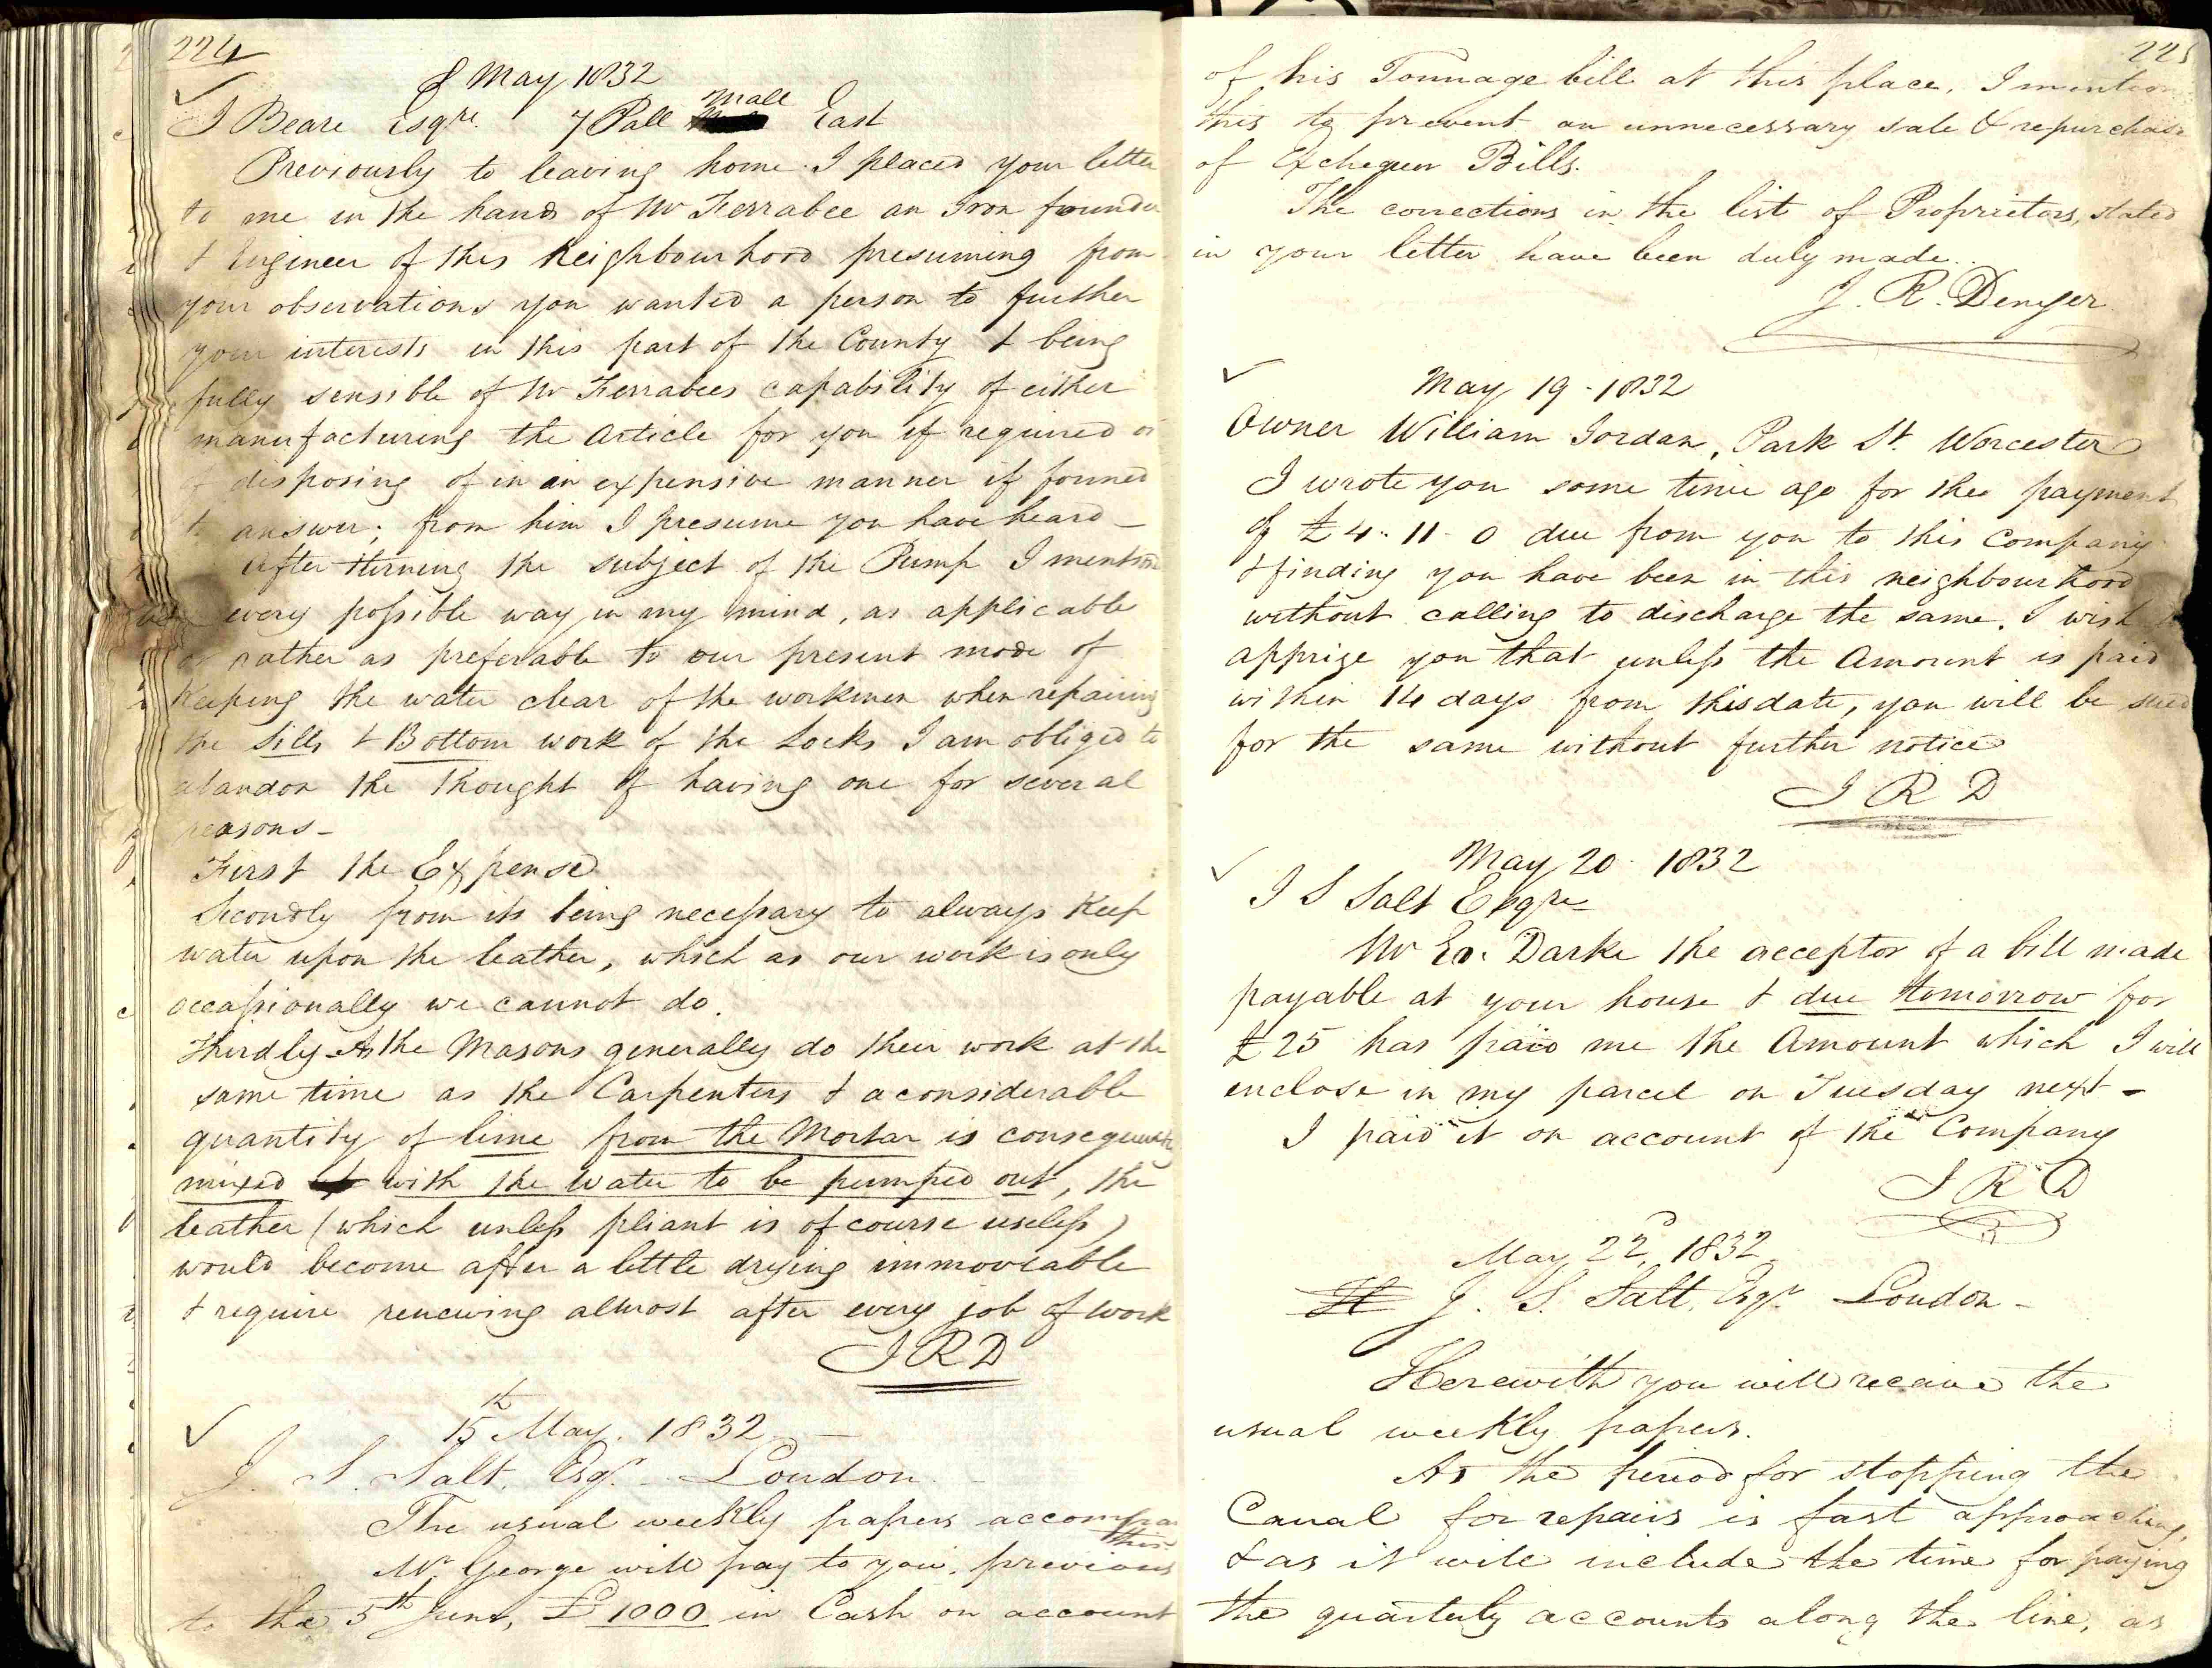 224
8 May 1832
J Beare Esqre. 7 Pall Mall East
Previously to leaving home I placed your letter
to me in the hands of Mr Ferrabee an Iron founder
& Engineer of this Neighbourhood presuming from
your observations you wanted a person to further
your interests in this part of the County & being
fully sensible of Mr Ferrabees capability of either
manufacturing the Article for you if required or
disposing of in an expensive manner if founed
to answer; from him I presume you have heard _
After turning the subject of the Pump I mention
every possible way in my mind, as applicable
or rather as preferable to our present mode of
Keeping the water clear of the workmen when repairing
the Sills & Bottom work of the Locks I am obliged to
abandon the thought of having one for several
reasons _
First the Expense
Secondly from its being necessary to always Keep
water upon the leather, which as our work is only
occassionally we cannot do.
Thirdly As the Masons generally do their work at the
same time as the Carpenters & a considerable
quantity of lime from the Mortar is consequently
mixed with the Water to be pumped out, the
leather (which unless pliant is of course useless)
would become after a little drying immoveable
& require renewing almost after every job of work
J R D
15th May. 1832
J. S. Salt, Esqr. London.
The usual weekly papers accompa
this
Mr. George will pay to you, previous
to the 5th June, £1000 in Cash on account
225
of his Tonnage bill at this place, I mention
this to prevent an unnecessary sale & repurchase
of Exchequer Bills.
The corrections in the list of Proprietors, stated
in your letter have been duly made.
J. R. Denyer
May 19 - 1832
Owner William Jordan, Park St. Worcester
I wrote you some time ago for the payment
of £4 . 11 . 0 due from you to this Company
& finding you have been in this neighbourhood
without calling to discharge the same. I wish to
apprize you that unless the Amount is paid
within 14 days from this date, you will be sued
for the same without further notice
J R D
May 20 - 1832
J S Salt Esqre
Mr En. Darke the acceptor of a bill made
payable at your house & due tomorrow for
£25 has paid me the Amount which I will
enclose in my parcel on Tuesday next -
I paid it on account of the Company
J R D
May 22d, 1832
J. S. Salt, Esqr. London -
Herewith you will receive the
usual weekly papers.
As the period for stopping the
Canal for repairs is fast approaching,
& as it will include the time for paying
the quarterly accounts along the line, as